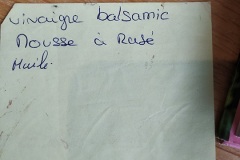 vinaigre balsamic
Mousse à Rasé
Huile.